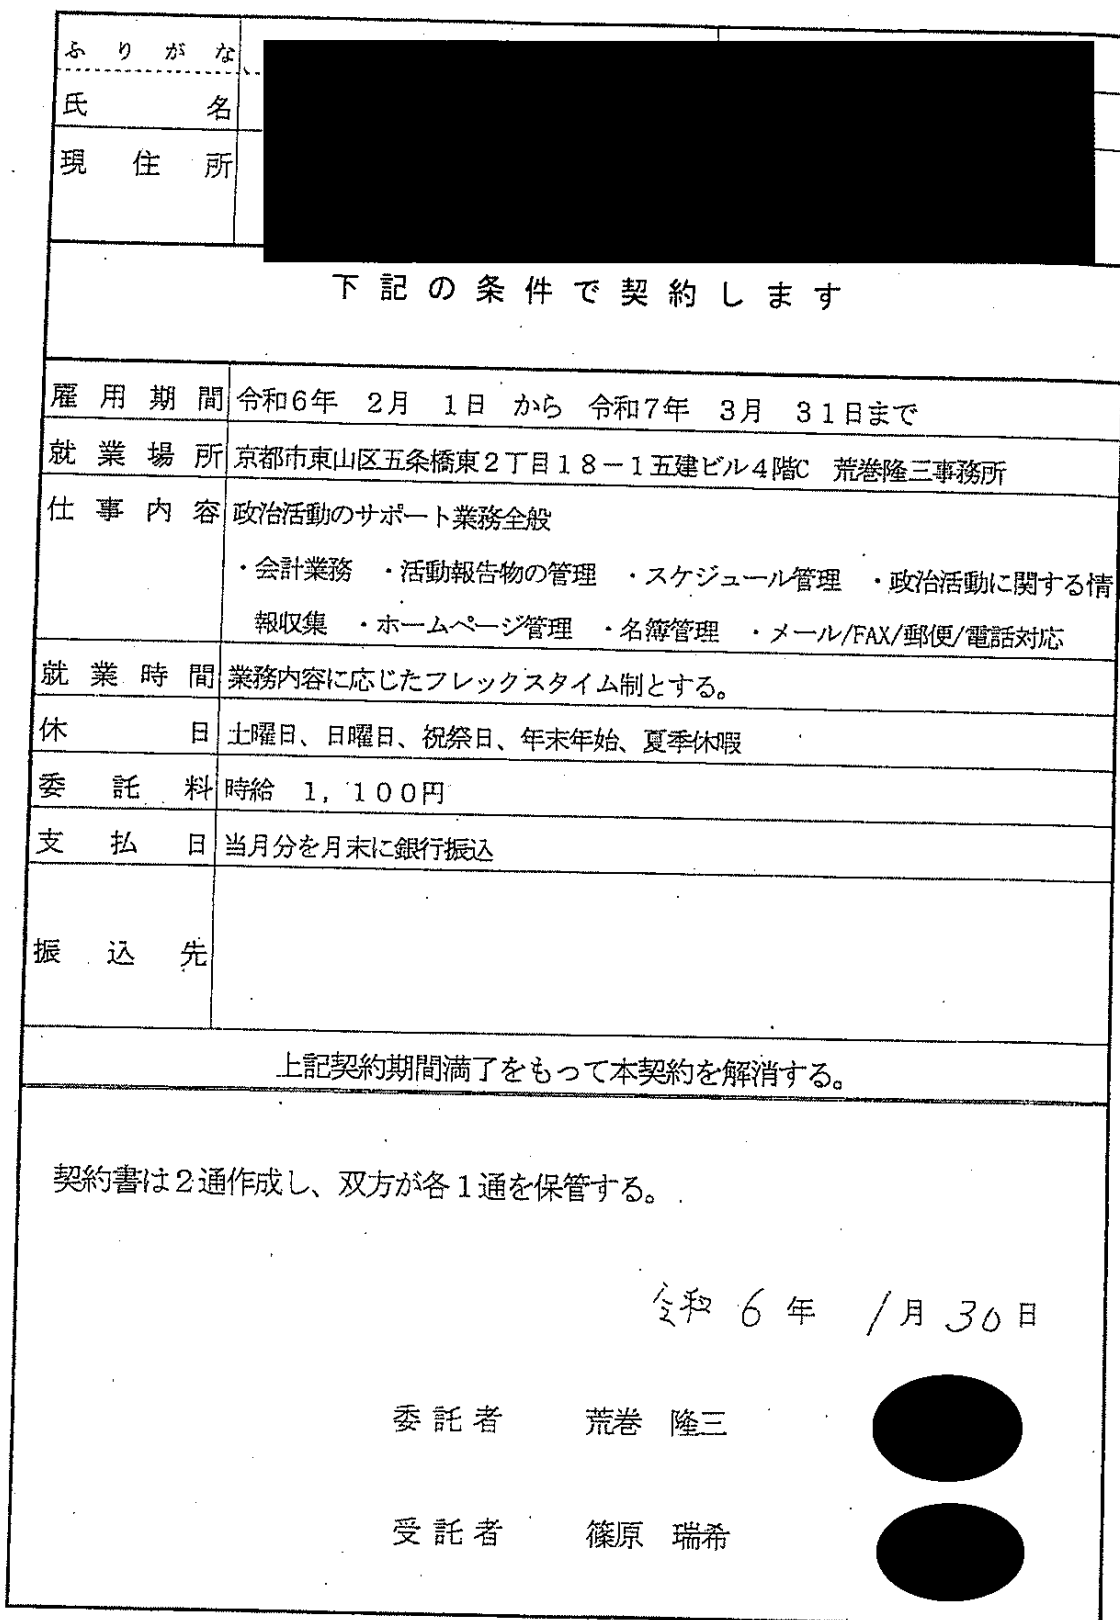 ふりがな
氏名
現住所
下記の条件で契約します
雇用期間 令和6年 2月 1日 から 令和7年 3月 31日まで
就業場所 京都市東山区五条橋東2丁目18-1五建ビル4階C 荒巻隆三事務所
仕事内容 政治活動のサポート業務全般
・会計業務 ・活動報告物の管理 ・スケジュール管理 ・政治活動に関する情
報収集 ・ホームページ管理 ・名簿管理 ・メール/FAX/郵便/電話対応
就業時間 業務内容に応じたフレックスタイム制とする。
休日 土曜日、日曜日、祝祭日、年末年始、夏季休暇
委託料 時給 1,100円
支払日 当月分を月末に銀行振込
振込先
上記契約期間満了をもって本契約を解消する。
契約書は2通作成し、双方が各1通を保管する。
令和 6年 1月30日
委託者 荒巻 隆三
受託者 篠原 瑞希